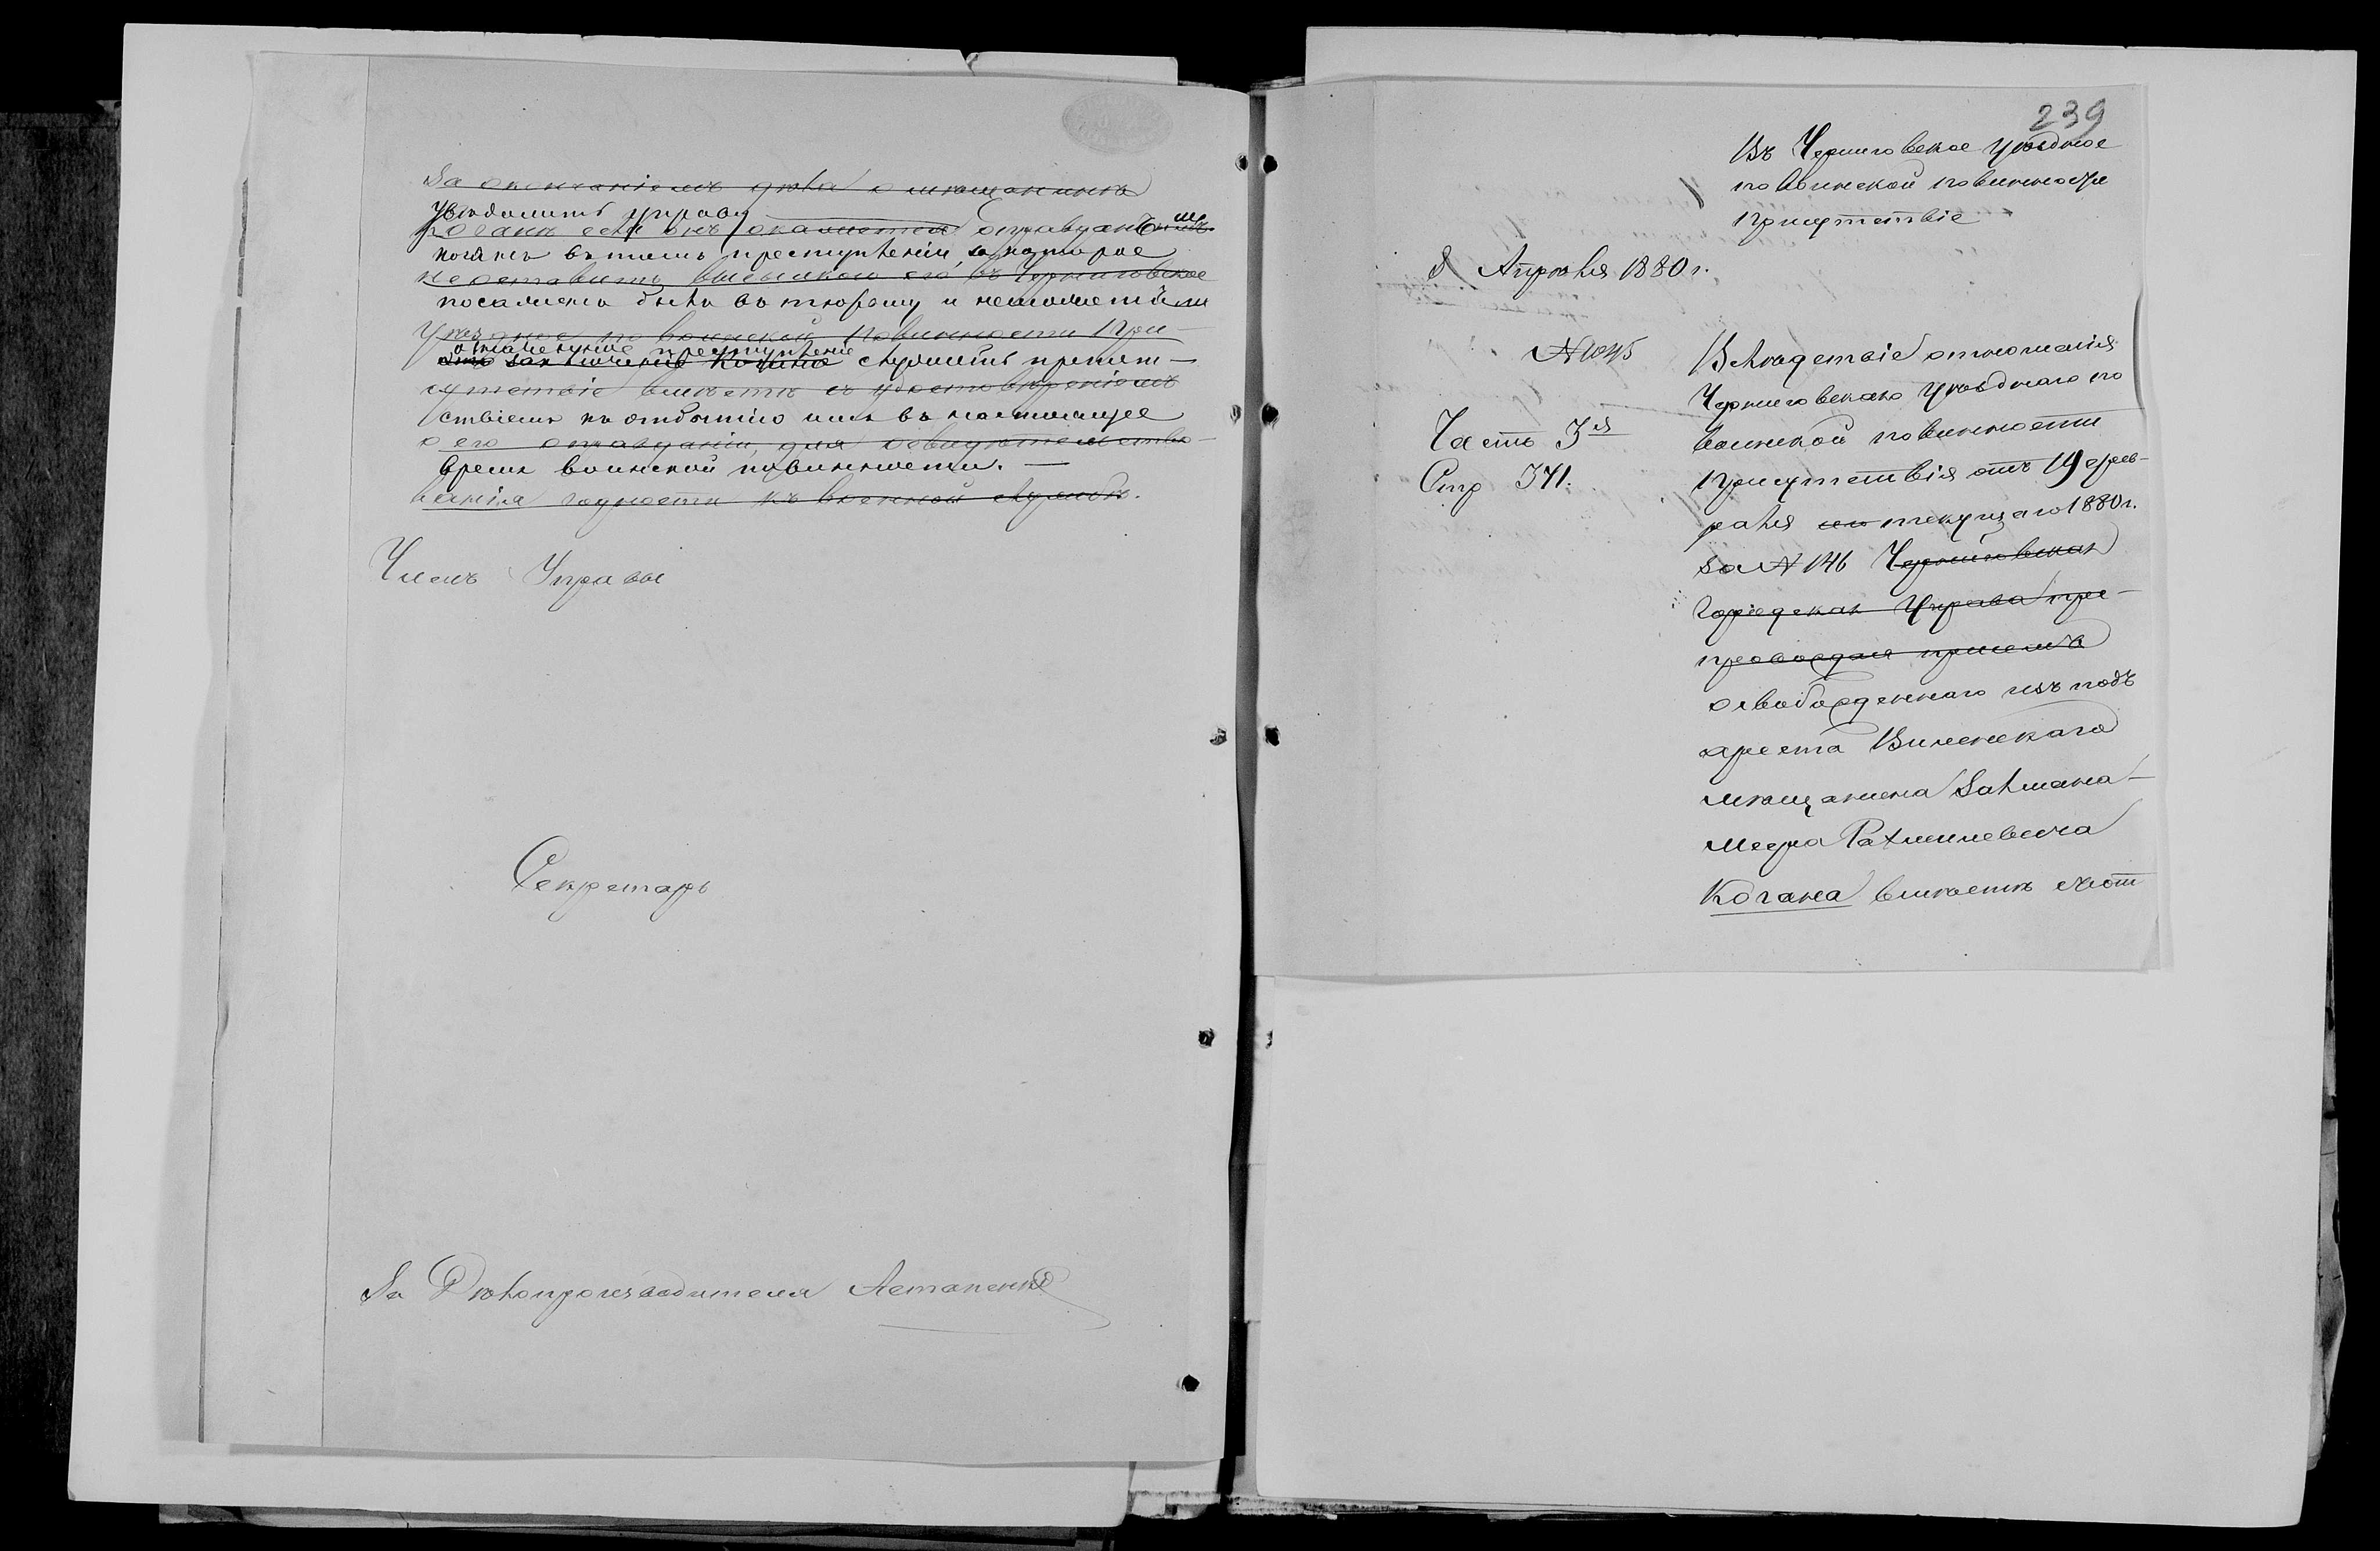 За окончаніемъ дѣла о мѣщанинѣ
увѣдомить управу
Коганѣ если онъ окажется оправданъ ли
коганъ въ томъ преступленіи, за которое
не оставить высылкою его въ Черниговское
посаженъ былъ въ тюрьму и неможетъ ли
Уѣздное по воинской повинности При-
означенное преступленіе
заключеніе Когана служить препят-
сутствіе вмѣстѣ съ удостовѣреніемъ
ствіемъ къ отбытію имъ въ настоящее
о его оправданіи, для освидѣтельство-
время воинской повинности. —
ванія годности къ военной службѣ.
Членъ Управы
Секретарь
За Дѣлопроизводителя
239
Въ Черниговское уѣздное
по воинской повинности
присутствіе
8 Апрѣля 1880 г.
№ 1045
Часть 3я
Стр 371.
Вслѣдствіе отношенія
Черниговскаго Уѣзднаго по
воинской повинности
присутствія отъ 19 фев-
раля сего текущаго 1880 г.
за № 146 Черниговская
Городская Управа пре-
провождая присемъ
освобожденнаго изъ подъ
ареста Виленскаго
мѣщанина Залмана-
Меера Рахмилевича
Когана вмѣстѣ съ